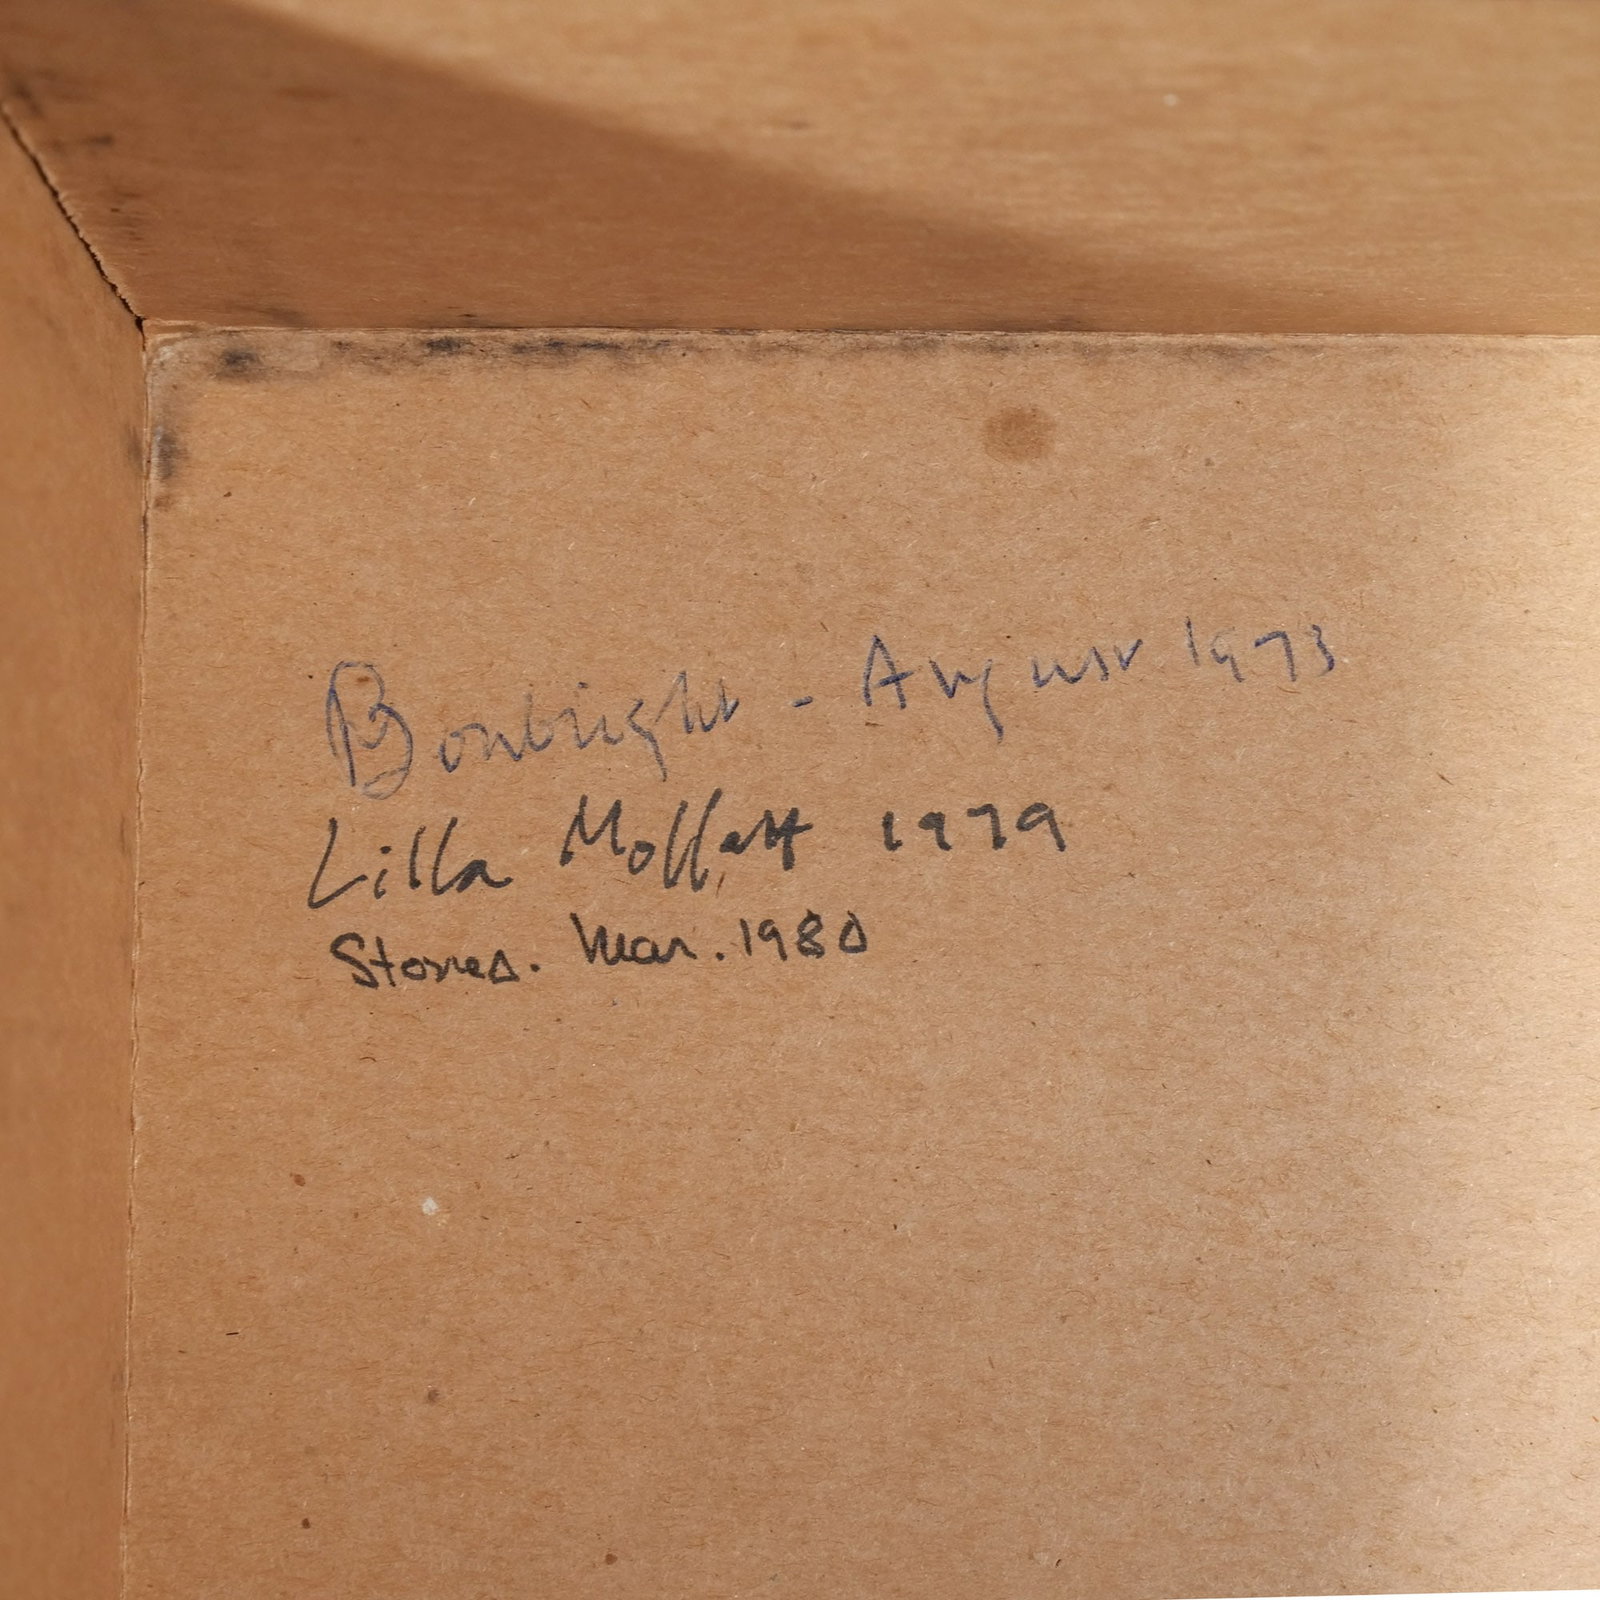 Bonbright - August 1973
Lilla Moffatt 1979
Stones. Mar. 1980